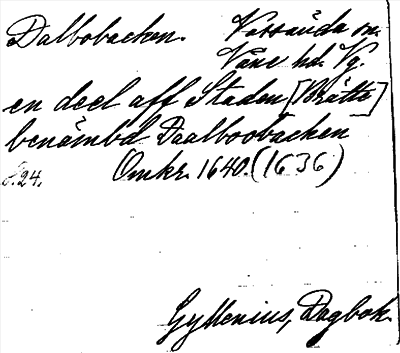 Dalbobacken. Vassända sn.
Väne hd. Vg.
en deel aff Staden [Brätte]
benämbd Daalboobacken
s. 24. Omkr. 1640. (1636)
Gyllenius, Dagbok.